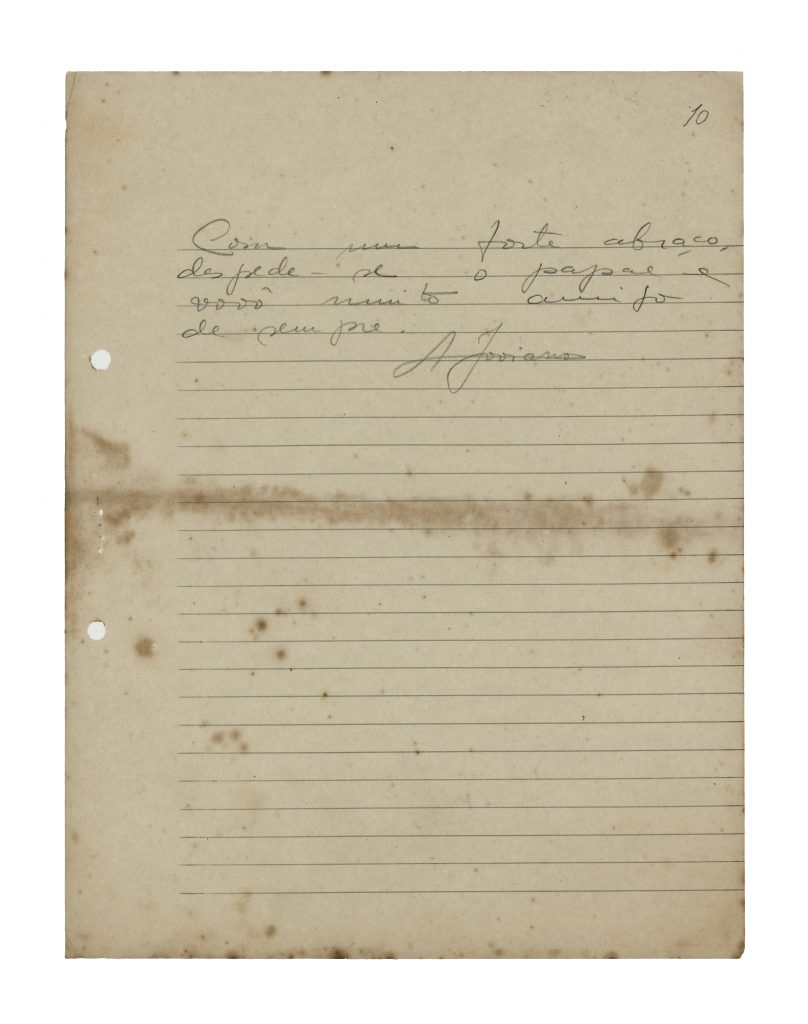 10
Com um forte abraço,
despede-se o papae e
vovô muito amigo
de sempre.
A Joviano